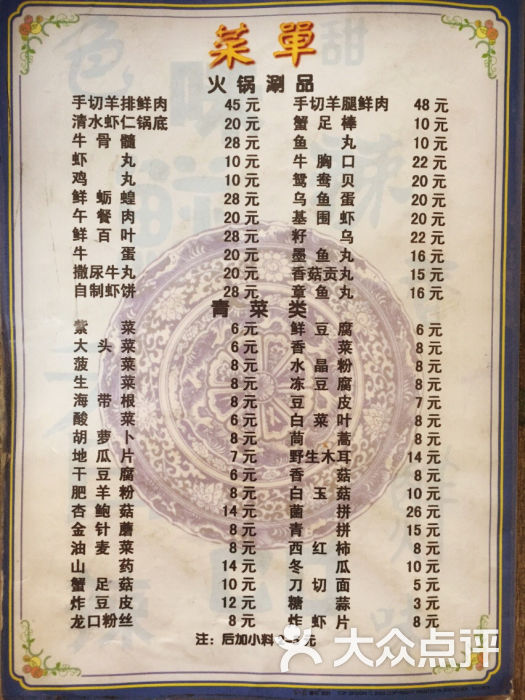 菜單
火锅涮品
手切羊排鲜肉 45元 手切羊腿鲜肉 48元
清水虾仁锅底 20元 蟹足棒 10元
牛骨髓 28元 鱼丸 10元
虾丸 10元 牛胸口 22元
鸡丸 10元 鸳鸯贝 20元
鲜蛎蝗 28元 乌鱼蛋 20元
午餐肉 20元 基围虾 20元
鲜百叶 28元 籽乌 22元
牛蛋 20元 墨鱼丸 16元
撒尿牛丸 20元 香菇贡丸 15元
自制虾饼 28元 章鱼丸 16元
青菜类
紫菜 6元 鲜豆腐 6元
大头菜 6元 香菜 8元
菠菜 8元 水晶粉 8元
生菜 8元 冻豆腐 8元
海带根 8元 豆皮 7元
酸菜 6元 白菜叶 6元
胡萝卜 8元 茼蒿 8元
地瓜片 7元 野生木耳 14元
干豆腐 6元 香菇 8元
肥羊粉 8元 白玉菇 10元
杏鲍菇 14元 菌拼 26元
金针蘑 8元 青拼 15元
油麦菜 8元 西红柿 8元
山药 14元 冬瓜 10元
蟹足菇 10元 刀切面 5元
炸豆皮 12元 糖蒜 3元
龙口粉丝 8元 炸虾片 8元
注：后加小料 元
大众点评